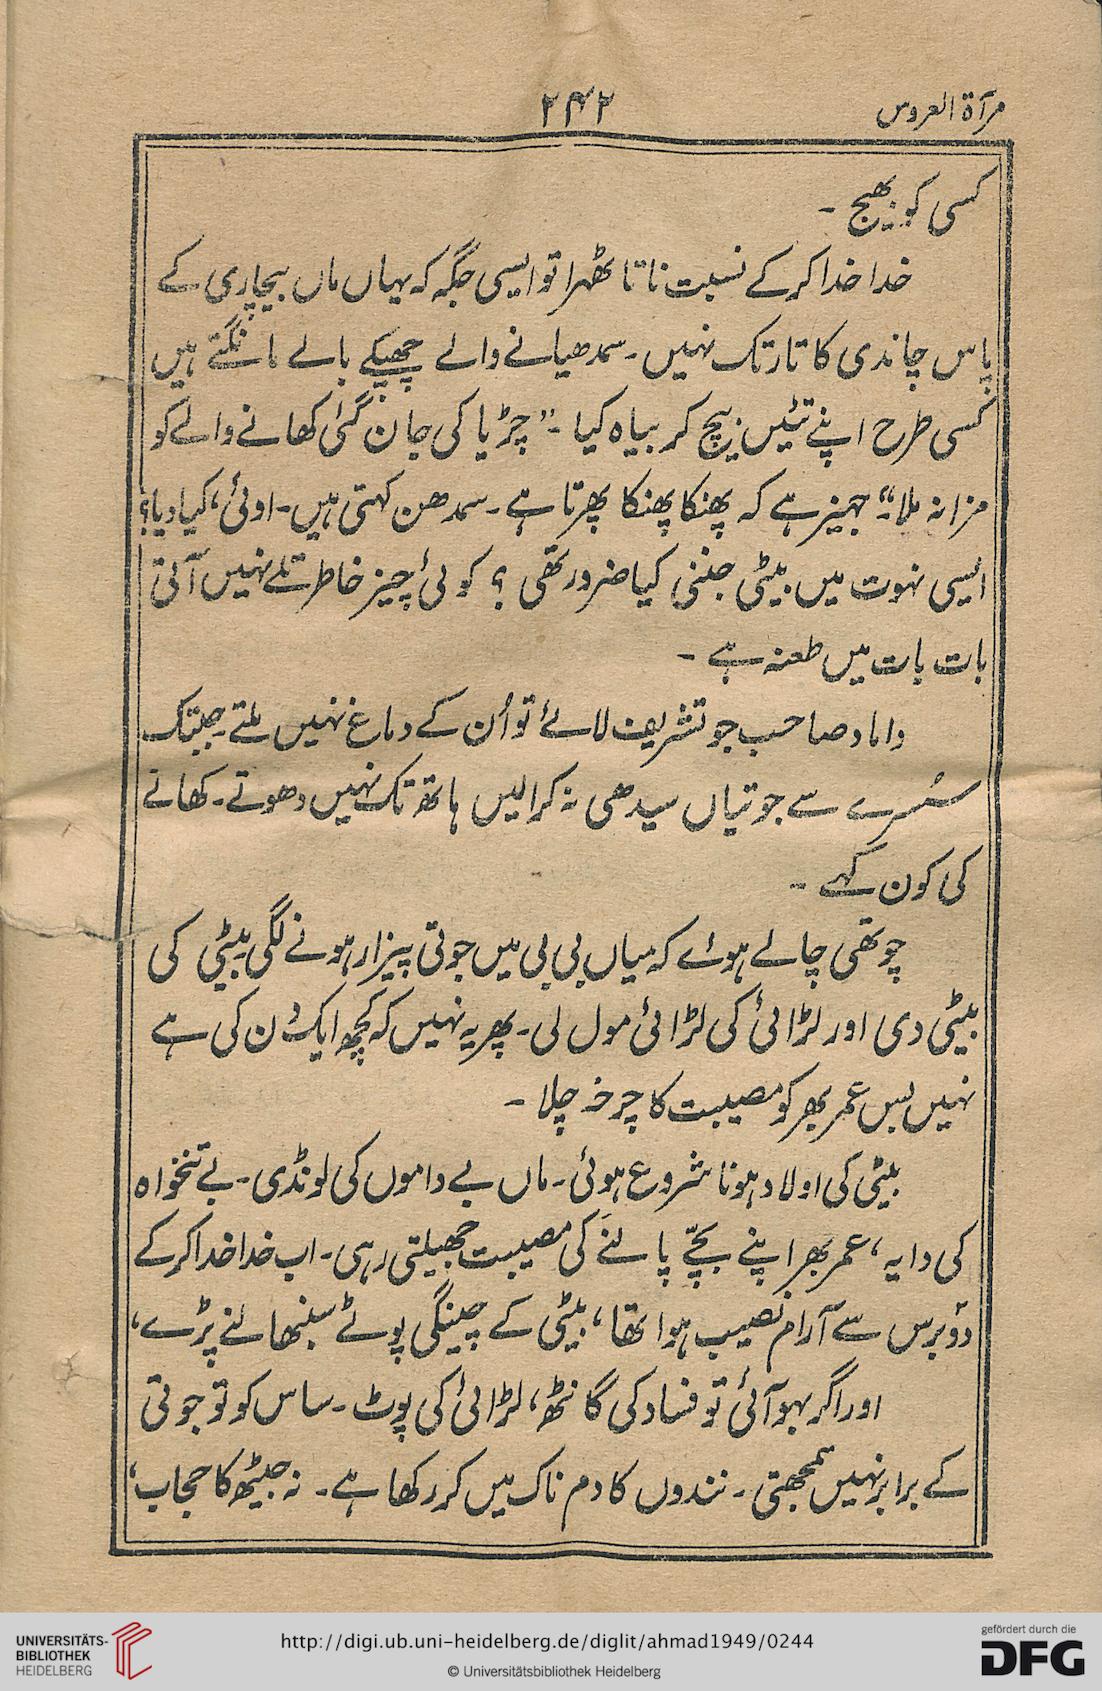 مرآۃ العروس
۲۴۲
کسی کو بھیج ۔
خدا خدا کر کے نسبت ناتا ٹھہرا تو ایسی جگہ کہ یہاں ماں بیچاری کے
پاس چاندی کا تار تک نہیں ۔ سمدھیانے والے چھپکے بالے مانگتے ہیں
کسی طرح اپنے تئیں بیچ کر بیاہ کیا ۔ ”چڑیا کی جان گئی کھانے والے کو
مزا نہ ملا“۔ جہیز ہے کہ پھنکا پھنکا پھرتا ہے ۔ سمدھن کہتی ہیں ۔ اوئی، کیا دیا؟
ایسی نہوت میں بیٹی جننی کیا ضرور تھی ؟ کوئی چیز خاطر تلے نہیں آتی
بات بات میں طعنہ ہے ۔
داماد صاحب جو تشریف لائے تو اُن کے دماغ نہیں ملتے ۔ جبتک
سُسرے سے جوتیاں سیدھی نہ کرالیں ہاتھ تک نہیں دھوتے ۔ کھانے
کی کون کہے ۔
چوتھی چالے ہوئے کہ میاں بی بی میں جوتی پیزار ہونے لگی بیٹی کی
بیٹی دی اور لڑائی کی لڑائی مول لی ۔ پھر یہ نہیں کہ کچھ ایک دن کی ہے
نہیں بس عمر بھر کو مصیبت کا چرخہ چلا ۔
بیٹی کی اولاد ہونا شروع ہوئی ۔ ماں بے داموں کی لونڈی ۔ بے تنخواہ
کی دایہ، عمر بھر اپنے بچّے پالنے کی مصیبت جھیلتی رہی ۔ اب خدا خدا کر کے
دو برس سے آرام نصیب ہوا تھا، بیٹی کے چینگی پوٹے سنبھالنے پڑے،
اور اگر بہو آئی تو فساد کی گانٹھ، لڑائی کی پوٹ ۔ ساس کو تو جوتی
کے برابر نہیں سمجھتی ۔ نندوں کا دم ناک میں کر رکھا ہے ۔ نہ جیٹھ کا حجاب،
UNIVERSITÄTS-
BIBLIOTHEK
HEIDELBERG
http://digi.ub.uni-heidelberg.de/diglit/ahmad1949/0244
© Universitätsbibliothek Heidelberg
gefördert durch die
DFG